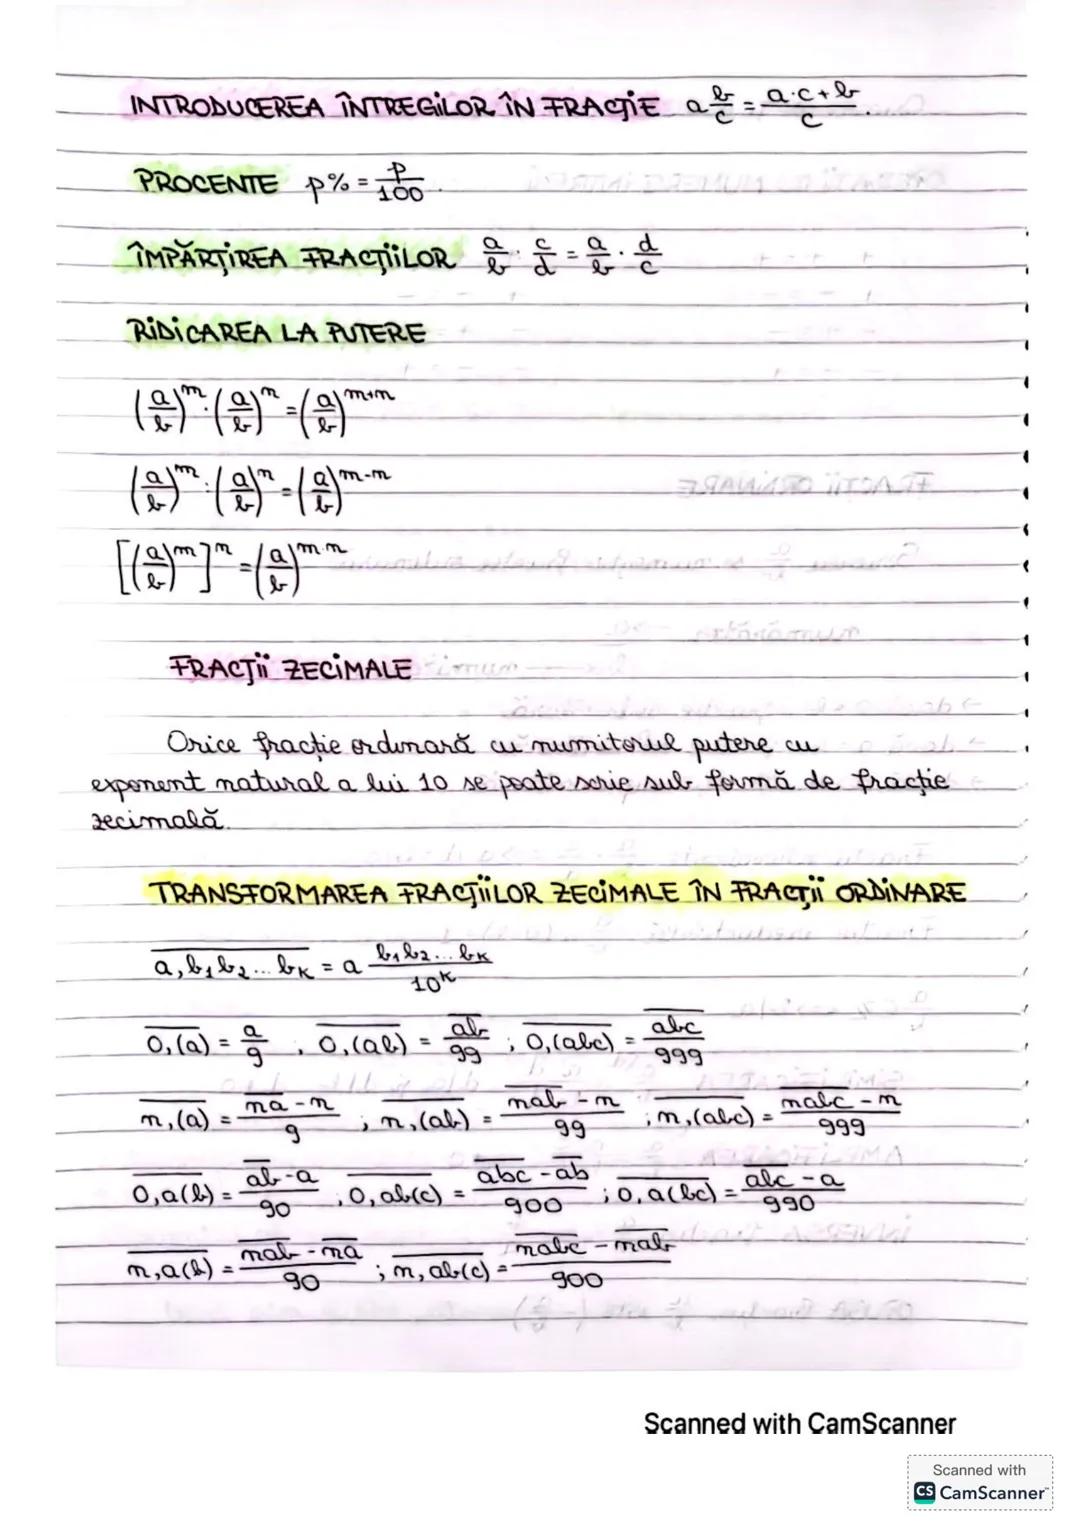 INTRODUCEREA ÎNTREGILOR ÎN FRACȚIE a b/c = a·c+b/c.
PROCENTE p% = p/100.
ÎMPĂRȚIREA FRACȚIILOR a/b : c/d = a/b · d/c
RIDICAREA LA PUTERE
(a/b)^m · (a/b)^n = (a/b)^m+n
(a/b)^m : (a/b)^n = (a/b)^m-n
[(a/b)^m]^n = (a/b)^m·n
FRACȚII ZECIMALE
Orice fracție ordinară cu numitorul putere cu
exponent natural a lui 10 se poate scrie sub formă de fracție
zecimală.
TRANSFORMAREA FRACȚIILOR ZECIMALE ÎN FRACȚII ORDINARE
a,b₁b₂...bₖ = a b₁b₂...bₖ/10^k
0,(a) = a/9 ; 0,(ab) = ab/99 ; 0,(abc) = abc/999
n,(a) = na-n/9 ; n,(ab) = nab-n/99 ; n,(abc) = nabc-n/999
0,a(b) = ab-a/90 ; 0,ab(c) = abc-ab/900 ; 0,a(bc) = abc-a/990
n,a(b) = nab-na/90 ; n,ab(c) = nabc-nab/900
Scanned with CamScanner
Scanned with
CS CamScanner™